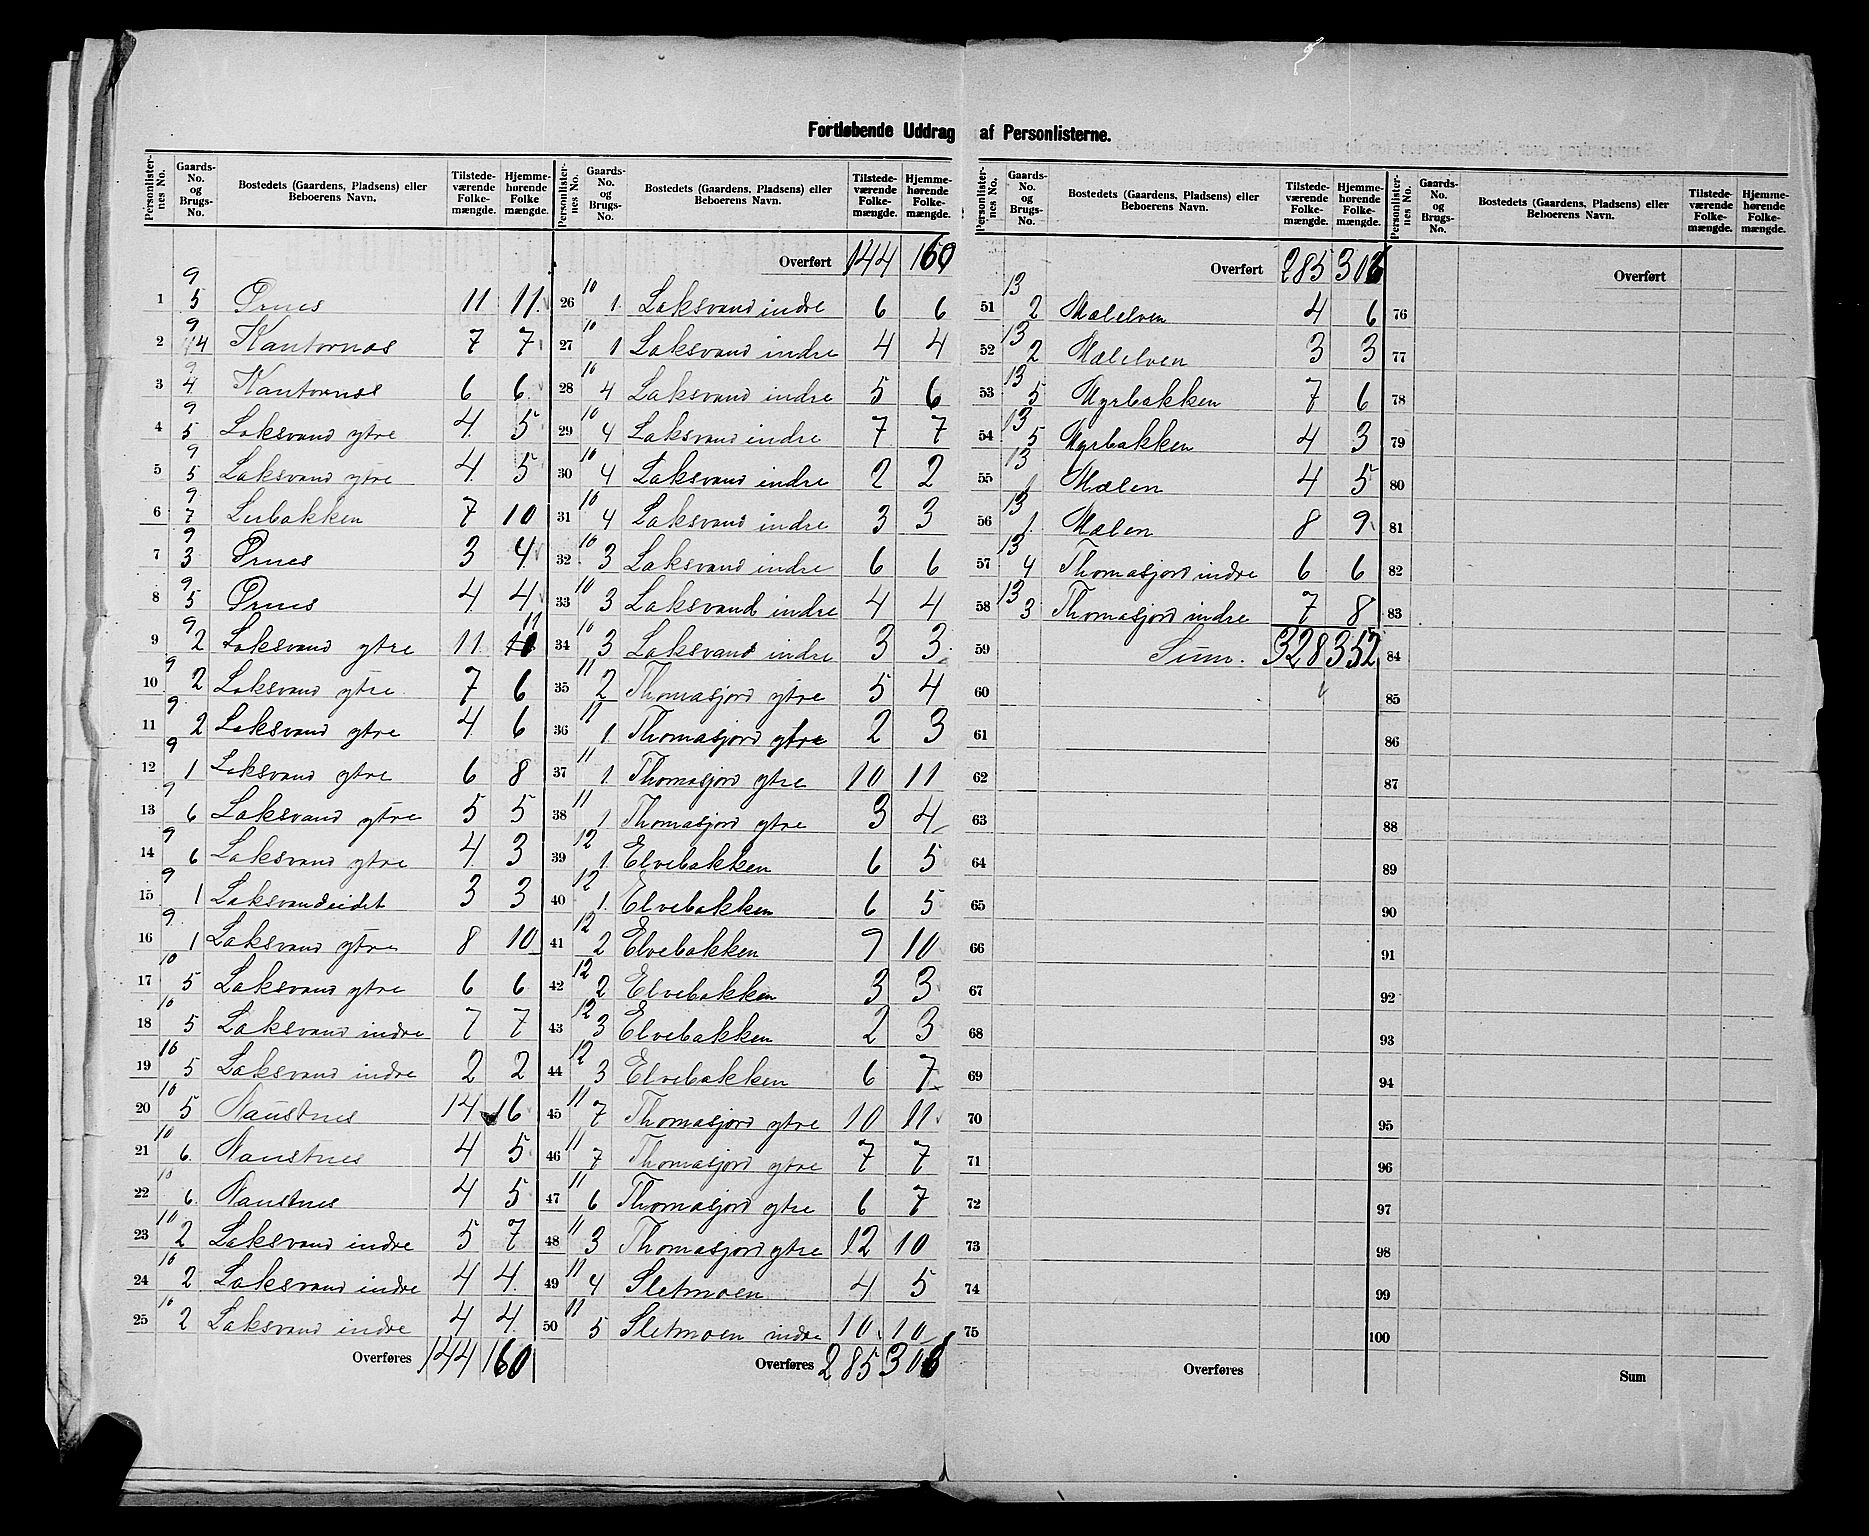 Fortløbende Uddrag af Personlisterne.
Personlister-nes No. | Gaards-No. og Brugs-No. | Bostedets (Gaardens, Pladsens) eller Beboerens Navn. | Tilstede-værende Folke-mængde. | Hjemme-hørende Folke mængde.
1 9 5 Ørnes 11 11
2 9 4 Kantornæs 7 7
3 9 4 Kantornæs 6 6
4 9 5 Laksvand ytre 4 5
5 9 5 Laksvand ytre 4 5
6 9 7 Lerbakken 7 10
7 9 3 Ørnes 3 4
8 9 5 Ørnes 4 4
9 9 2 Laksvand ytre 11 11
10 9 2 Laksvand ytre 7 6
11 9 2 Laksvand ytre 4 6
12 9 1 Laksvand ytre 6 8
13 9 6 Laksvand ytre 5 5
14 9 6 Laksvand ytre 4 3
15 9 1 Laksvandeidet 3 3
16 9 1 Laksvand ytre 8 10
17 10 5 Laksvand ytre 6 6
18 10 5 Laksvand indre 7 7
19 10 5 Laksvand indre 2 2
20 10 5 Naustnes 14 16
21 10 6 Naustnes 4 5
22 10 6 Naustnes 4 5
23 10 2 Laksvand indre 5 7
24 10 2 Laksvand indre 4 4
25 10 2 Laksvand indre 4 4
Overføres 144 160
Personlister-nes No. | Gaards-No. og Brugs-No. | Bostedets (Gaardens, Pladsens) eller Beboerens Navn. | Tilstede-værende Folke-mængde. | Hjemme-hørende Folke-mængde.
Overført 144 160
26 10 1 Laksvand indre 6 6
27 10 1 Laksvand indre 4 4
28 10 4 Laksvand indre 5 6
29 10 4 Laksvand indre 7 7
30 10 4 Laksvand indre 2 2
31 10 4 Laksvand indre 3 3
32 10 3 Laksvand indre 6 6
33 10 3 Laksvand indre 4 4
34 10 3 Laksvand indre 3 3
35 11 2 Thomasjord ytre 5 4
36 11 1 Thomasjord ytre 2 3
37 11 1 Thomasjord ytre 10 11
38 11 1 Thomasjord ytre 3 4
39 12 1 Elvebakken 6 5
40 12 1 Elvebakken 6 5
41 12 2 Elvebakken 9 10
42 12 2 Elvebakken 3 3
43 12 3 Elvebakken 2 3
44 12 3 Elvebakken 6 7
45 11 7 Thomasjord ytre 10 11
46 11 7 Thomasjord ytre 7 7
47 11 6 Thomasjord ytre 6 7
48 11 3 Thomasjord ytre 12 10
49 11 4 Sletmoen 4 5
50 11 5 Sletmoen indre 10 10
Overføres 285 306
Personlister-nes No. | Gaards-No. og Brugs-No. | Bostedets (Gaardens, Pladsens) eller Beboerens Navn. | Tilstede-værende Folke-mængde. | Hjemme-hørende Folke-mængde.
Overført 285 306
51 13 2 Mælelven 4 6
52 13 2 Mælelven 3 3
53 13 5 Myrbakken 7 6
54 13 5 Myrbakken 4 3
55 13 1 Mælen 4 5
56 13 1 Mælen 8 9
57 13 4 Thomasjord indre 6 6
58 13 3 Thomasjord indre 7 8
59 Sum. 328 352
60
61
62
63
64
65
66
67
68
69
70
71
72
73
74
75
Overføres
Personlister-nes No. | Gaards-No. og Brugs-No. | Bostedets (Gaardens, Pladsens) eller Beboerens Navn. | Tilstede-værende Folke-mængde. | Hjemme-hørende Folke-mængde.
Overført
76
77
78
79
80
81
82
83
84
85
86
87
88
89
90
91
92
93
94
95
96
97
98
99
100
Sum